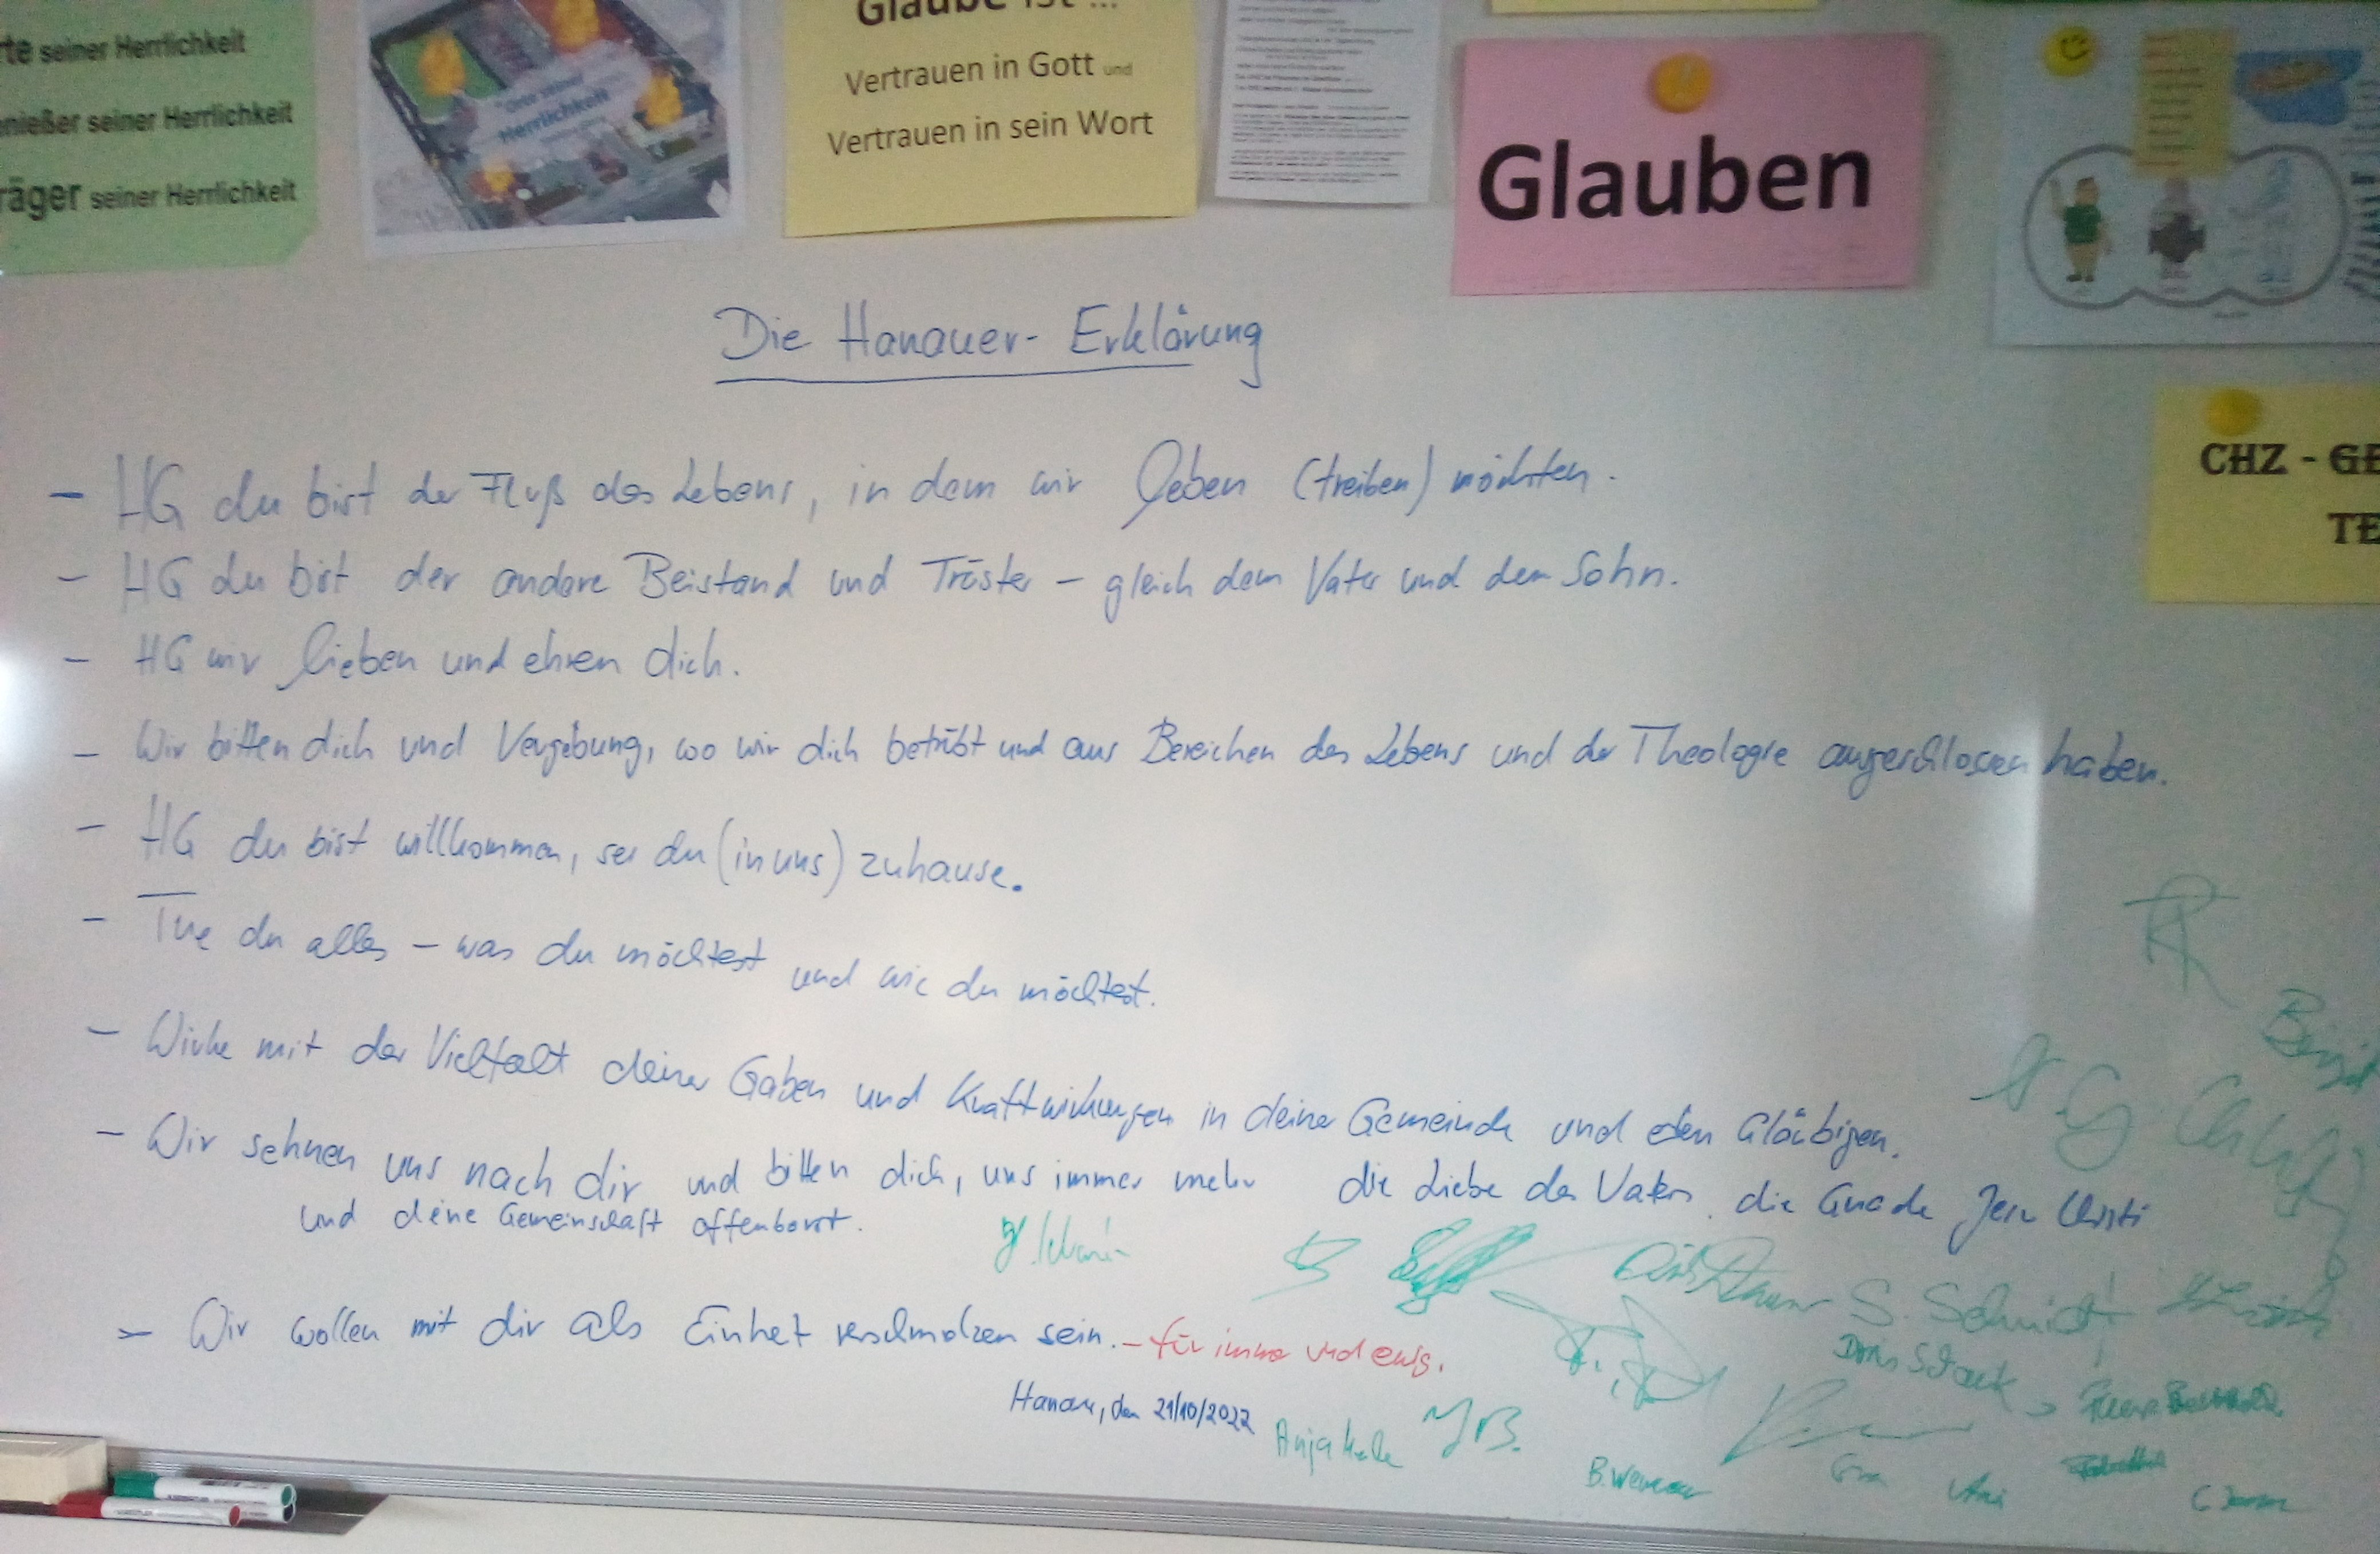 rte seiner Herrlichkeit
nießer seiner Herrlichkeit
räger seiner Herrlichkeit
Herrlichkeit
Glaube ist ...
Vertrauen in Gott und
Vertrauen in sein Wort
Glauben
CHZ - GE
TE
Die Hanauer- Erklärung
- HG du bist der Fluß des Lebens, in dem wir leben (treiben) möchten.
- HG du bist der andere Beistand und Tröster - gleich dem Vater und dem Sohn.
- HG wir lieben und ehren dich.
- Wir bitten dich und Vergebung, wo wir dich betrübt und aus Bereichen des Lebens und der Theologie ausgeschlossen haben.
- HG du bist willkommen, sei du (in uns) zuhause.
- Tue du alles - was du möchtest und wie du möchtest.
- Wirke mit der Vielfalt deiner Gaben und Kraftwirkungen in deiner Gemeinde und den Gläubigen.
- Wir sehnen uns nach dir und bitten dich, uns immer mehr die Liebe des Vaters, die Gnade Jesu Christi
und deine Gemeinschaft offenbarst.
- Wir wollen mit dir als Einheit verschmolzen sein. - für immer und ewig.
Hanau, den 21/10/2022
S. Schmidt
Doris Stark
Anja
B.